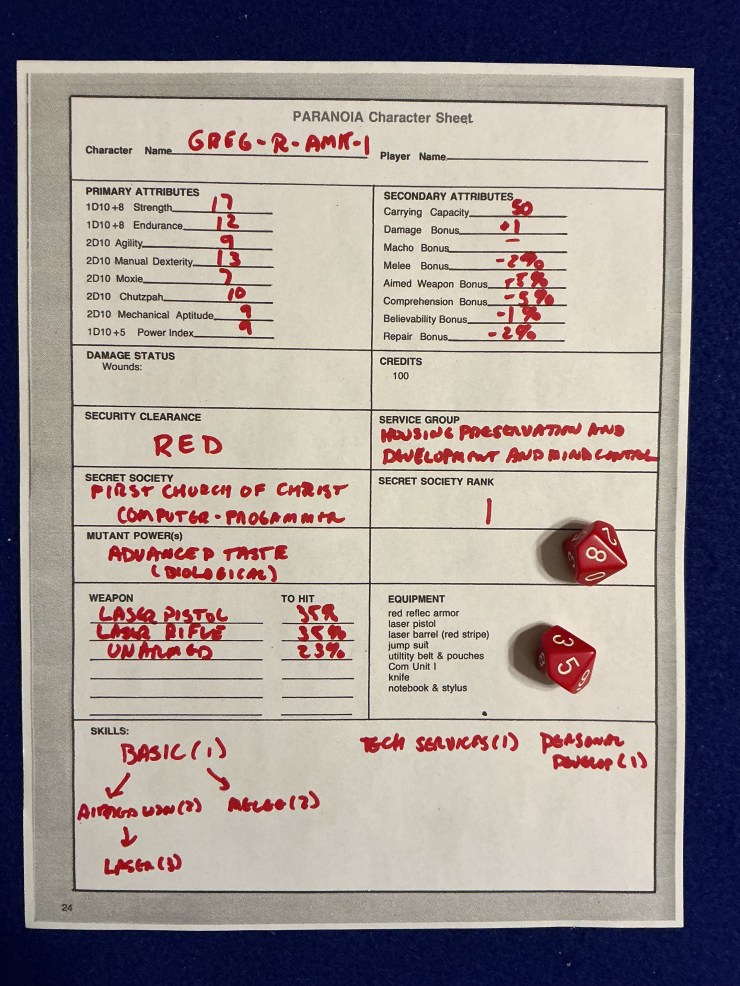 PARANOIA Character Sheet
Character Name GREG-R-AMK-1
Player Name
PRIMARY ATTRIBUTES
1D10+8 Strength 17
1D10+8 Endurance 12
2D10 Agility 9
2D10 Manual Dexterity 13
2D10 Moxie 7
2D10 Chutzpah 10
2D10 Mechanical Aptitude 9
1D10+5 Power Index 9
SECONDARY ATTRIBUTES
Carrying Capacity 50
Damage Bonus +1
Macho Bonus –
Melee Bonus -2%
Aimed Weapon Bonus +5%
Comprehension Bonus -5%
Believability Bonus -1%
Repair Bonus -2%
DAMAGE STATUS
Wounds:
CREDITS
100
SECURITY CLEARANCE
RED
SERVICE GROUP
HOUSING PRESERVATION AND
DEVELOPMENT AND MIND CONTROL
SECRET SOCIETY
FIRST CHURCH OF CHRIST
COMPUTER-PROGAMMER
SECRET SOCIETY RANK
1
MUTANT POWER(s)
ADVANCED TASTE
(BIOLOGICAL)
WEAPON TO HIT
LASER PISTOL 35%
LASER RIFLE 35%
UNARMED 23%
EQUIPMENT
red reflec armor
laser pistol
laser barrel (red stripe)
jump suit
utiltity belt & pouches
Com Unit I
knife
notebook & stylus
8
2
0
3
5
SKILLS:
BASIC (1)
AIMED WPN (2) MELEE (2)
LASER (3)
TECH SERVICES (1)
PERSONAL
DEVELOP (1)
24